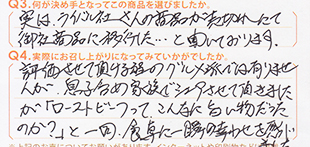 Q3.何が決め手となってこの商品を選びましたか。
実は、ライバル社さんの商品が売切れだって
御社商品に初めてした…と聞いております。
Q4.実際にお召し上がりになってみていかがでしたか。
評価させて頂ける程のグルメ家では有りませ
んが、息子含め家族でシェアさせて頂きました
が「ローストビーフって、こんなに旨い物だった
のか?」と一同、食卓に一瞬の